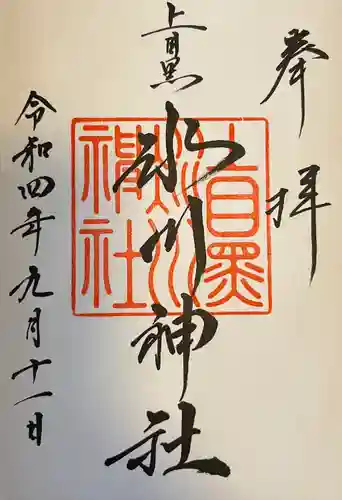 奉拝
上目黒
氷川神社
上目黒
氷川
神社
令和四年九月十一日